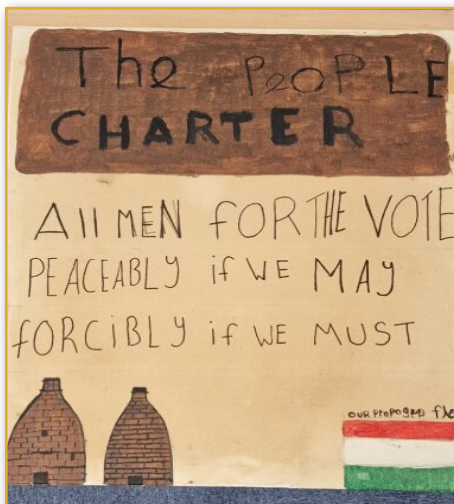 The PeOPLE
CHARTER
All MEN fORTHE VOTE
PEACEABLY if WE MAY
fORCiBLY if WE MUST
OUR PrOPOgED